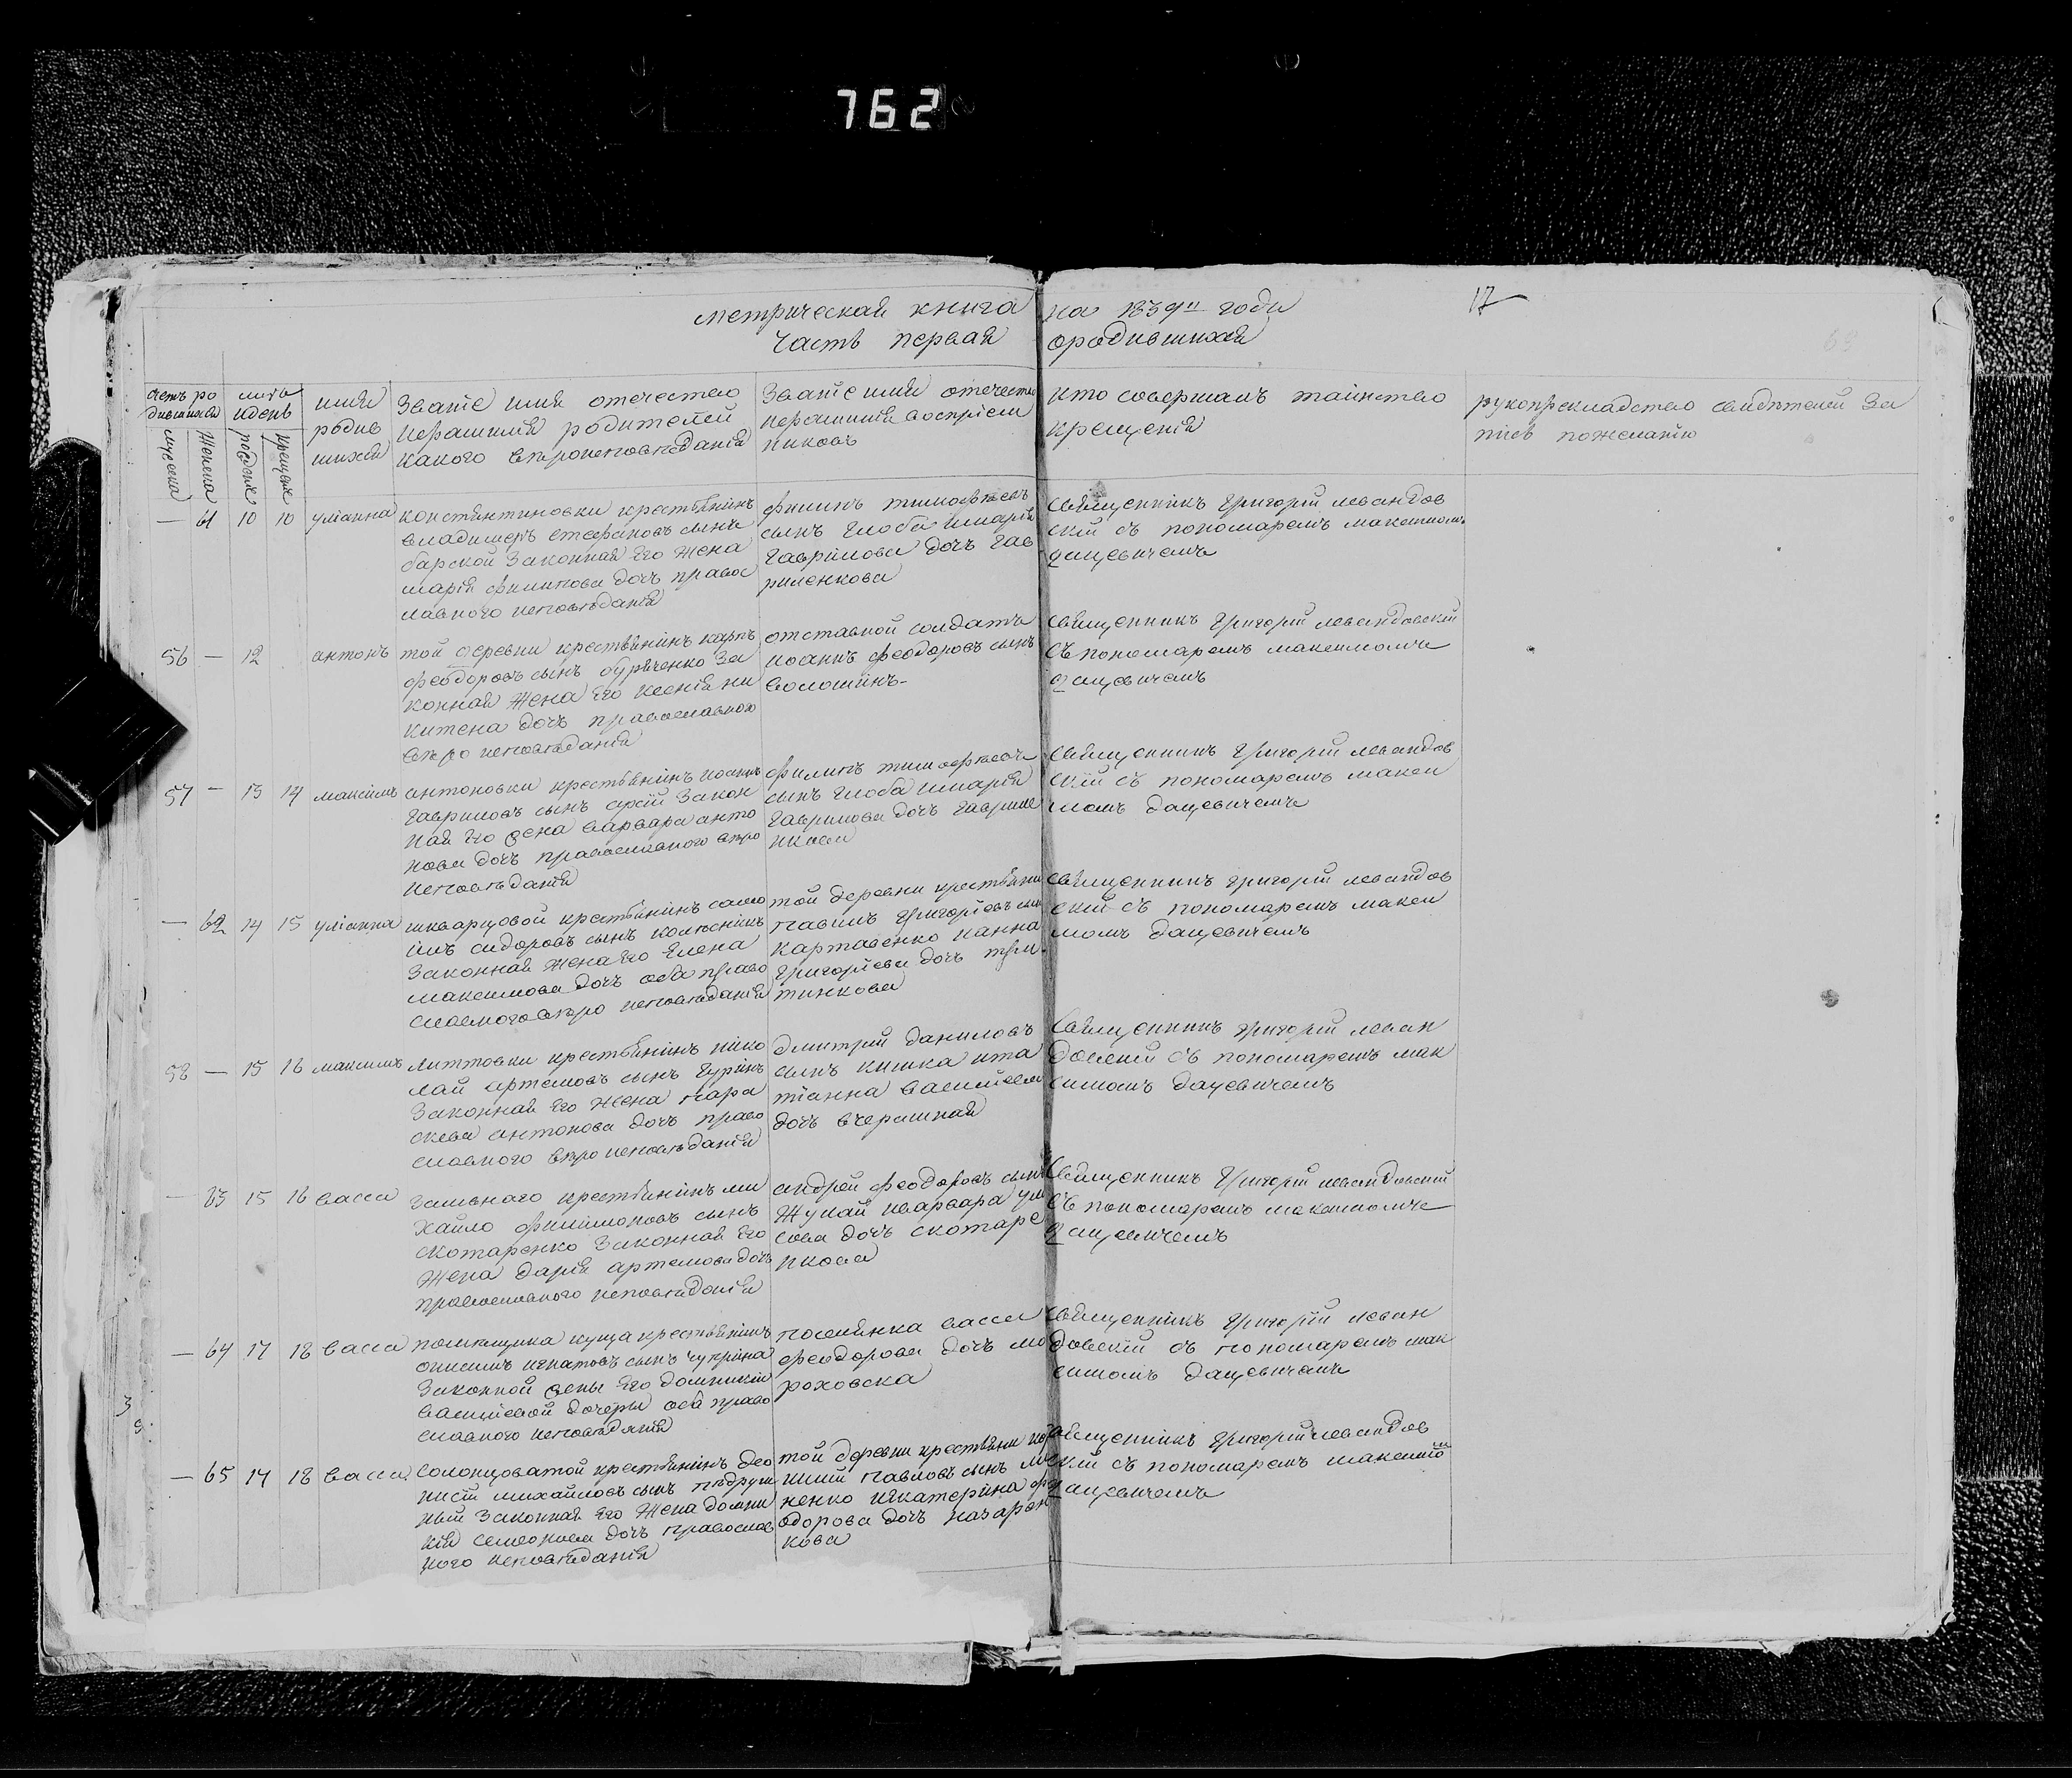 762
метрическая книга на 1839й годъ
17
63
часть первая ородившихся
счетъ родившихся
мужеска
женска
мць идень
рожденiе
крещенiе
имя родив
шихся
Званiе имя отечество
ифамилiя родителей
какого вѣроисповѣданiя
Званiе имя отечество
ифамилiя воспрiем
никовъ
кто совершалъ таинство
крещенiя
рукоприкладство свидѣтелей за
пись пожеланiю
— 61 10 10 улiанна
константиновки крестьянинъ
владимеръ стефановъ сынъ
барской Законная Его жена
марiя филипова дочъ правос
лавного исповѣданiя
филипъ тимофѣевъ
сынъ глоба имарiя
гаврiлова дочъ гав
риленкова
Священникъ григорiй левандов
скiй съ пономаремъ максимомъ
дацевичемъ
56 — 12 антонъ
той деревни крестьянинъ карпъ
феодоровъ сынъ бурѣченко за
конная жена Его ксенiя ни
китена дочъ православного
вѣроисповѣданiя
отставной солдатъ
иоанъ феодоровъ сынъ
волошинъ-
Священникъ григорiй левандовскiй
съ пономаремъ максимомъ
дацевичемъ
57 — 13 14 максимъ
антоновки крестьянинъ иоанъ
гавриловъ сынъ Закон
ная Его жена варвара анто
нова дочъ православного вѣро
исповѣданiя
филипъ тимофѣевъ
сынъ глоба имарiя
гаврилова дочъ гавриле
нкова
Священникъ григорiй левандов
скiй съ пономаремъ макси
момъ дацевичемъ
— 62 14 15 улiанна
шкварцовой крестьянинъ само
илъ сидоровъ сынъ колѣсникъ
Законная жена Его Елена
максимова дочъ оба право
славного вѣроисповѣданiя
той деревни крестьянинъ
павилъ григорiевъ сынъ
картавенко ианна
григорiева дочъ
тинкова
Священникъ григорiй левандов
скiй съ пономаремъ макси
момъ дацевичемъ
58 — 15 16 максимъ
литтовки крестьянинъ нико
лай артемовъ сынъ гуринъ
Законная Его жена пара
скева антонова дочъ право
славного вѣроисповѣданiя
Дмитрiй даниловъ
сынъ кишка ита
тiанна василiева
дочъ вчерашная
Священникъ григорiй леван
довскiй съ пономаремъ мак
симомъ дацевичемъ
— 63 15 16 васса
крестьянинъ ми
хайло филимоновъ сынъ
скотаренко Законная Его
жена дарiя артемова дочъ
православного исповѣданiя
андрей феодоровъ сынъ
жукай иварвара ули
сова дочъ скотаре
нкова
Священникъ григорiй левандовскiй
съ пономаремъ максимомъ
дацевичемъ
— 64 17 18 васса
помѣщика куща крестьянинъ
онисимъ игнатовъ сынъ чуприна
Законной жены Его домникiи
василiевой дочери оба право
славного исповѣданiя
поселянка васса
феодорова дочъ мо
роховска
Священникъ григорiй леван
довскiй съ пономаремъ мак
симомъ дацевичемъ
— 65 17 18 васса
Солонцоватой крестьянинъ део
нисiй михайловъ сынъ
ный Законная Его жена домни
кiя семеонова дочъ православ
ного исповѣданiя
той деревни крестьяни
павловъ сынъ
ненко иЕкатерина фе
одорова дочъ назарен
кова
Священникъ григорiй левандов
скiй съ пономаремъ максимомъ
дацевичемъ